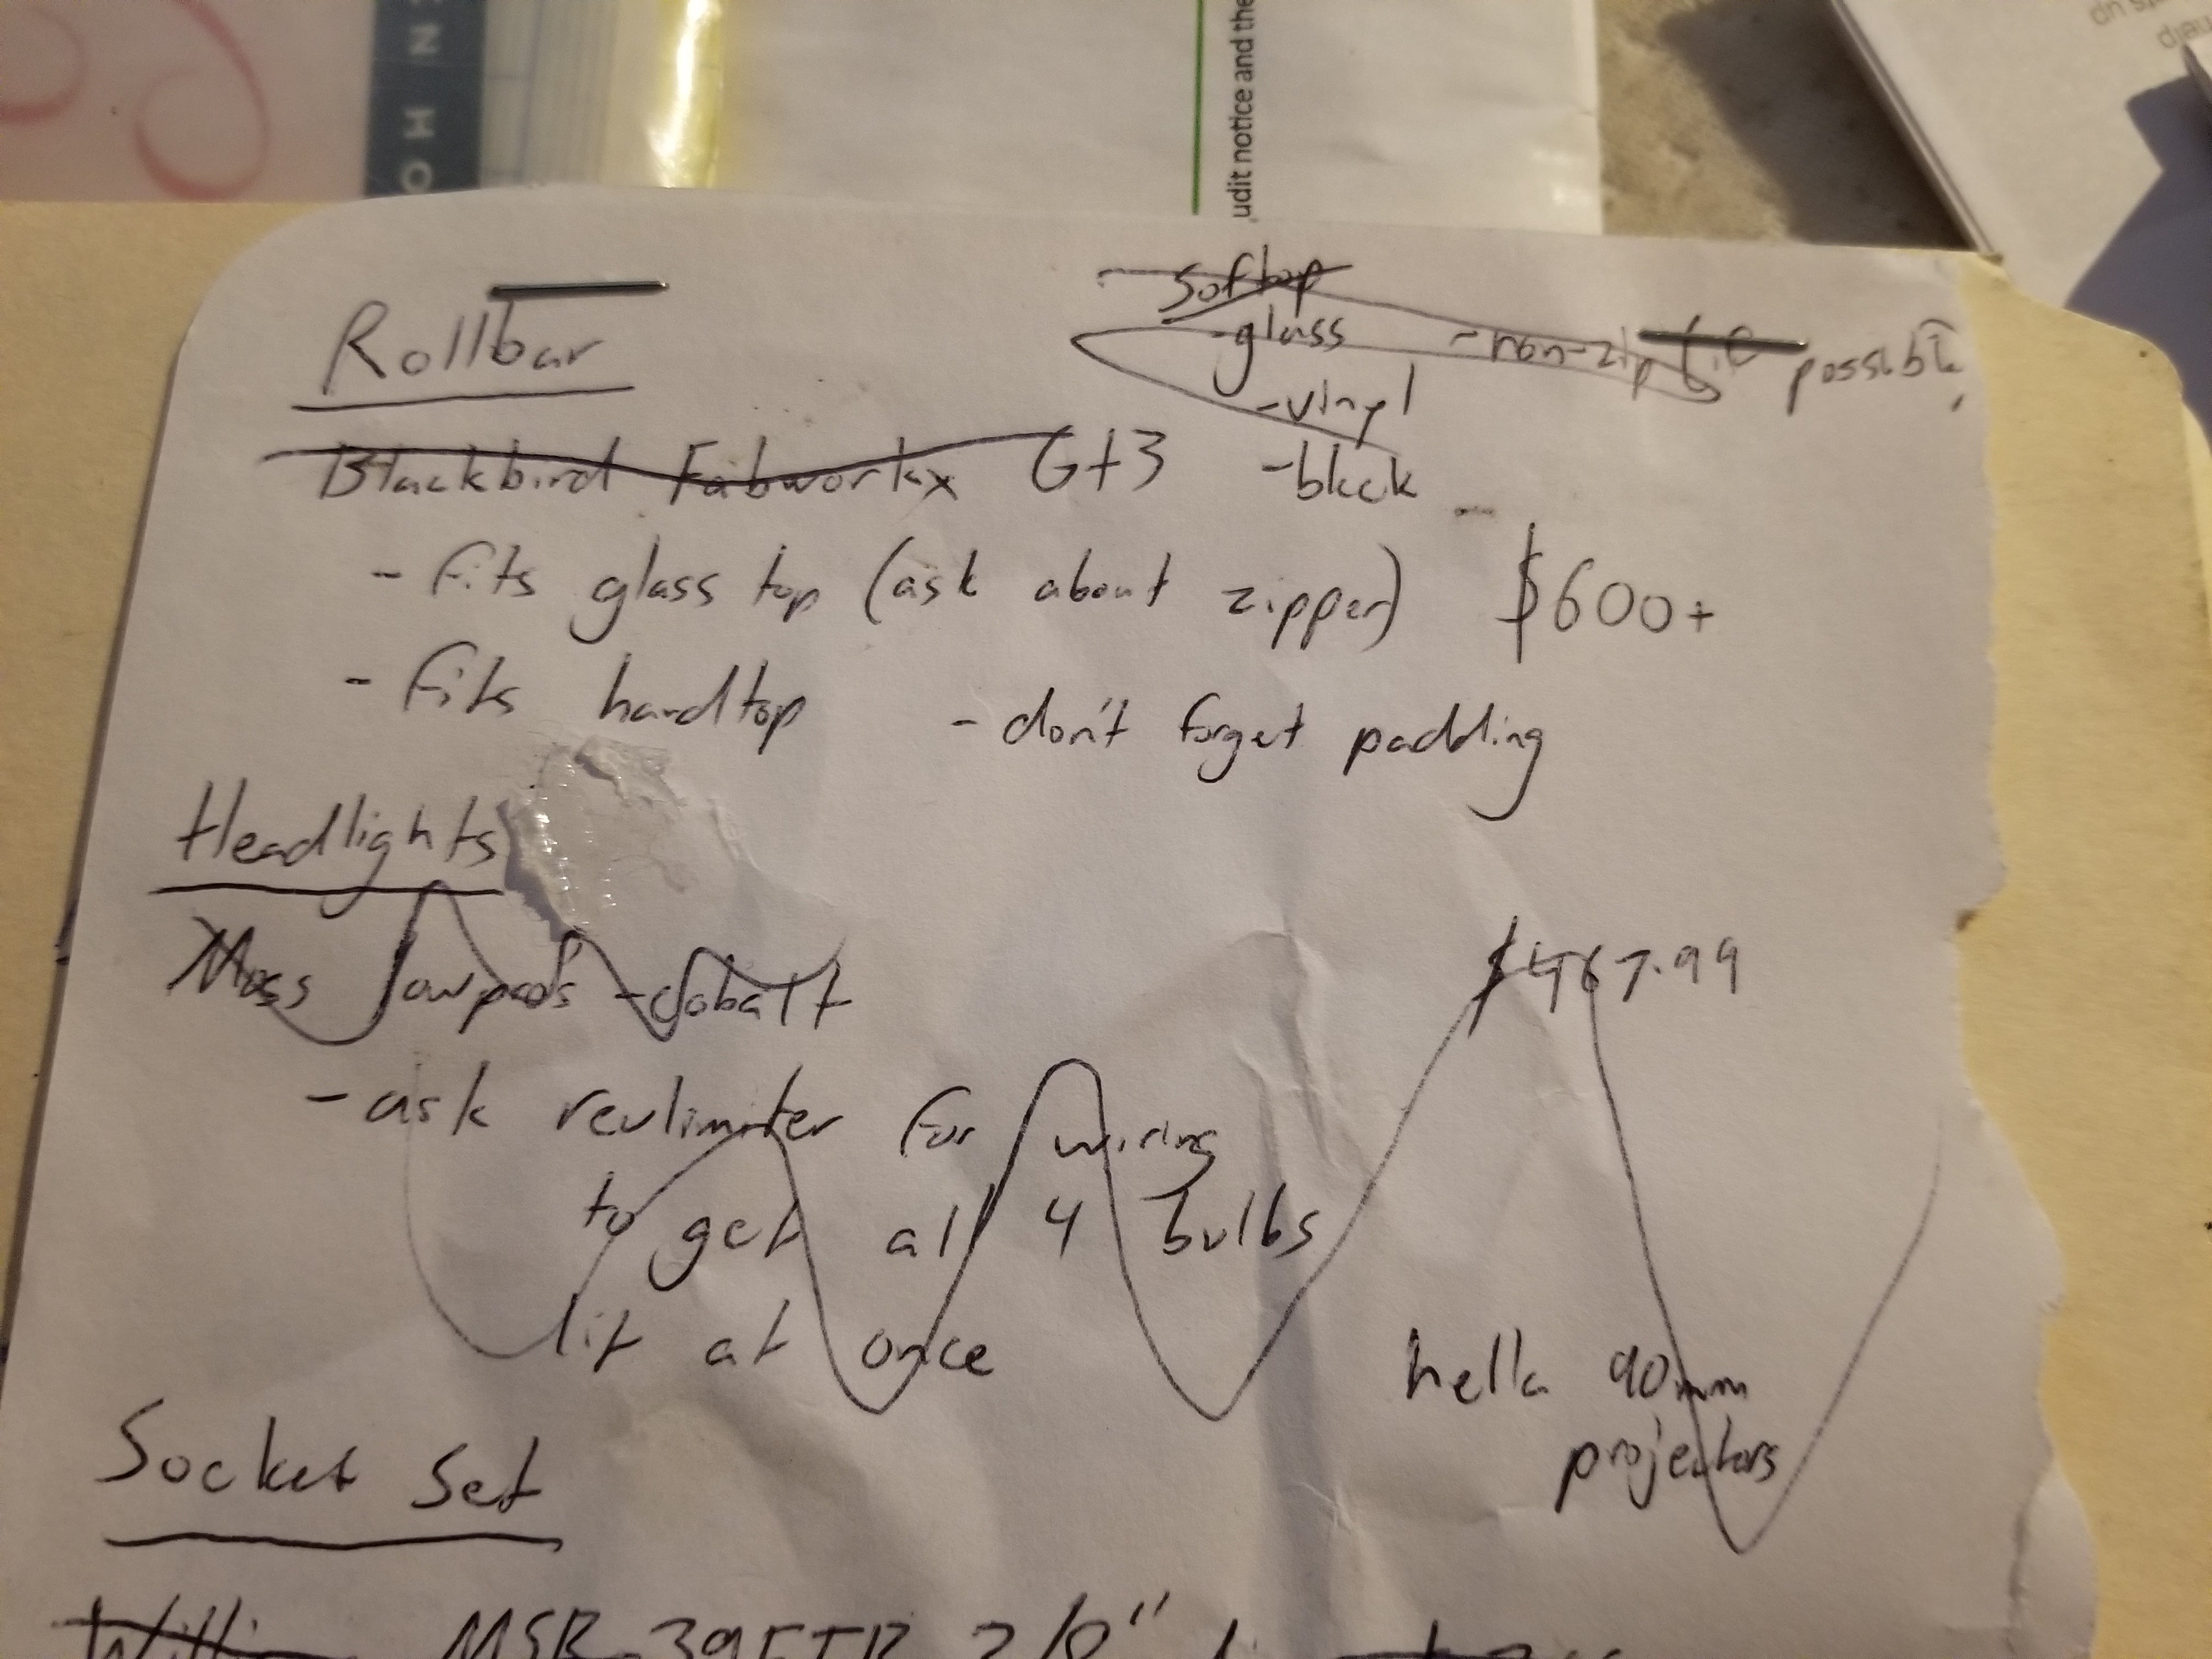 HON
udit notice and the
Rollbar
Softop
-glass -non-zip if possible
-vinyl
Blackbird Fabworkx Gt3 -black
- fits glass top (ask about zipper) $600+
- fits hardtop - don't forget padding
Headlights
Moss lowpods -cobalt $467.99
- ask revlimiter for wiring
to get all 4 bulbs
lit at once
hella 90mm
projectors
Socket Set